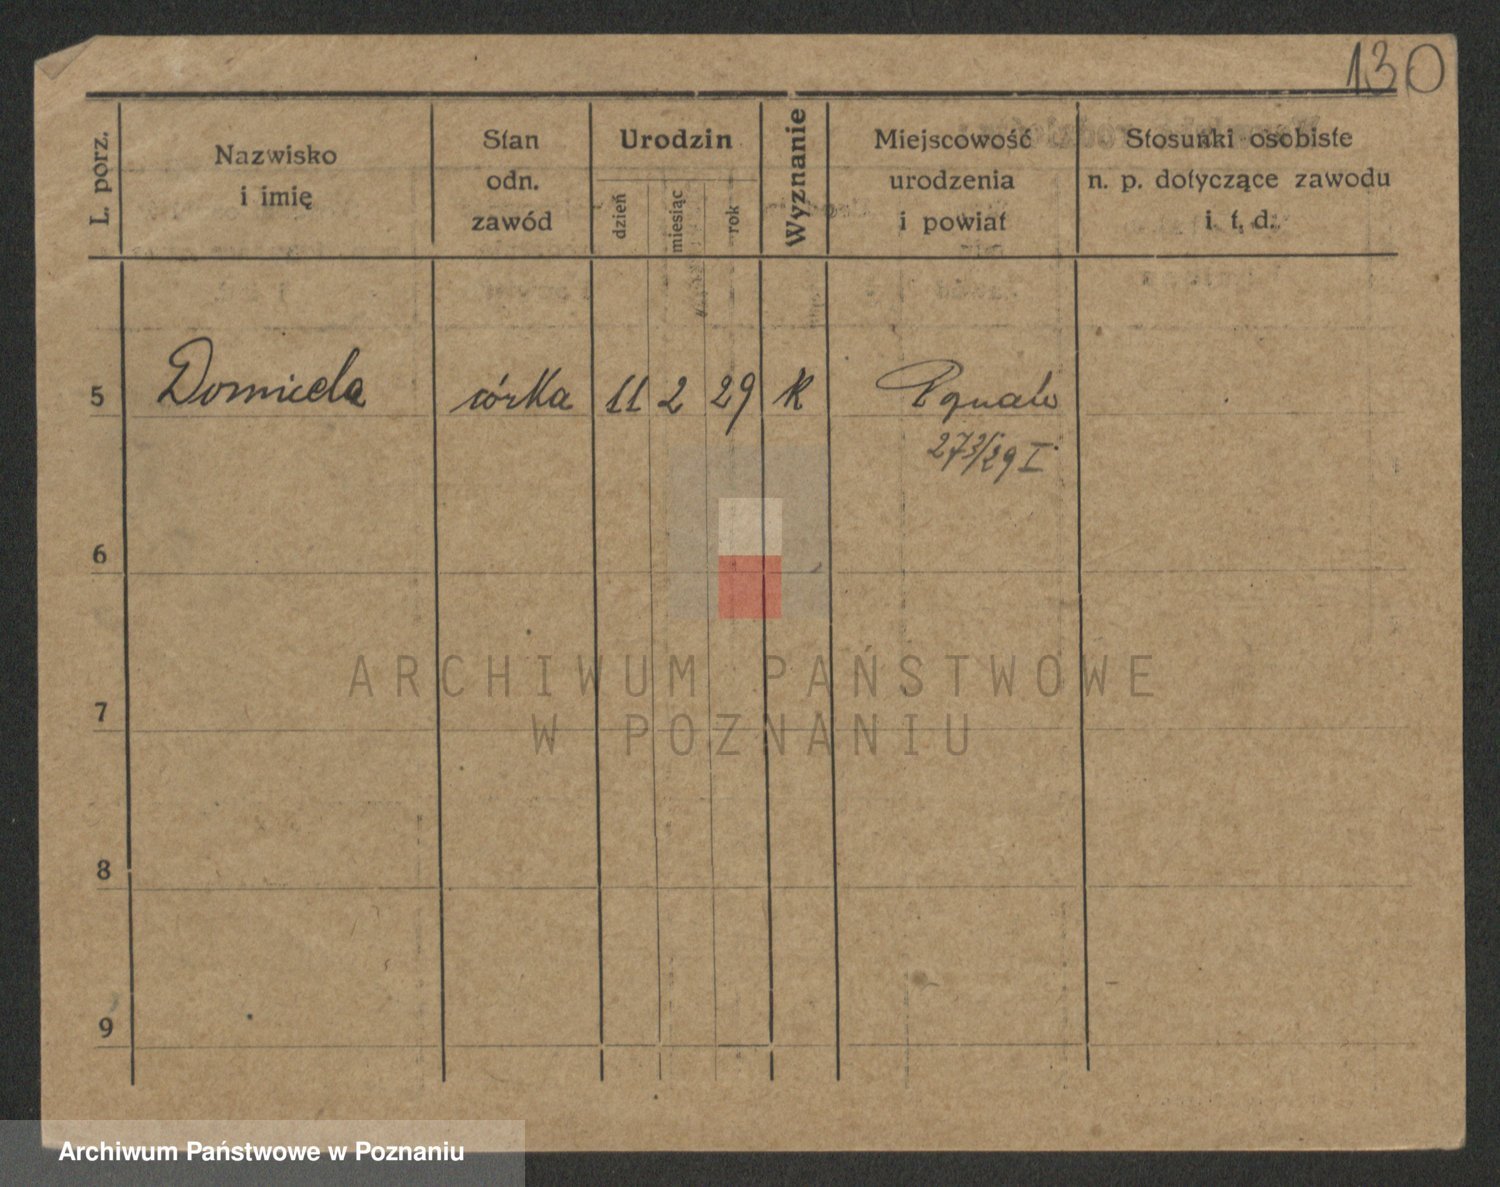 130
L. porz.
Nazwisko
i imię
Stan
odn.
zawód
Urodzin
dzień
miesiąc
rok
Wyznanie
Miejscowość
urodzenia
i powiat
Stosunki osobiste
n. p. dotyczące zawodu
i. t. d.
5 córka 11 2 29 K
29 I
6
7
8
9
ARCHIWUM PAŃSTWOWE
W POZNANIU
Archiwum Państwowe w Poznaniu